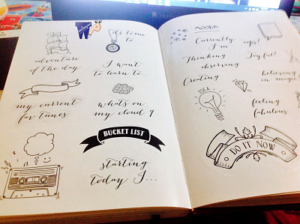 it's time
to
adventure
of the day
I want
to learn to
my current
fav tunes
what's on
my cloud 9
BUCKET LIST
starting
today I...
Currently
I'm
Thinking
Joyful!
observing
Creating
believing
in magic
feeling
fabulous
DO IT NOW